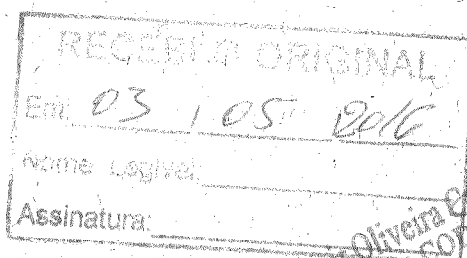 RECEBI O ORIGINAL
Em: 03 / 05 / 2016
Nome Legível:
Assinatura:
Oliveira